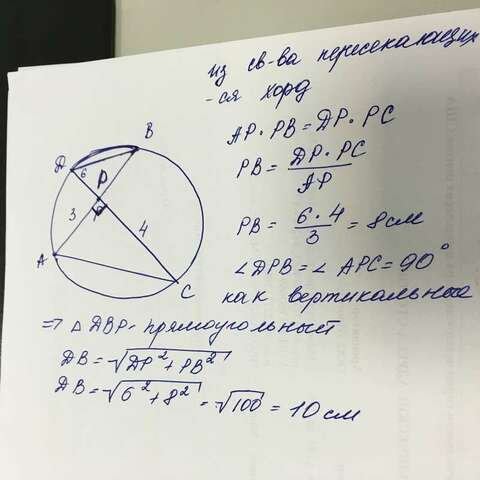 из св-ва пересекающих
-ся хорд
AP · PB = DP · PC
PB = DP · PC / AP
PB = 6 · 4 / 3 = 8 см
∠DPB = ∠APC = 90°
как вертикальные
=> △DBP - прямоугольный
DB = √DP² + PB²
DB = √6² + 8² = √100 = 10 см
B
D
6
P
3
4
A
C